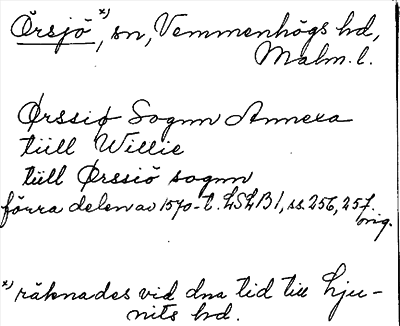 Örsjö x), sn, Vemmenhögs hd,
Malm. l.
Ørssiø Sognn Annexa
tiill Willie
tiill Ørssiö sognn
förra delen av 1570-t. LSLB 1, ss. 256, 257.
orig.
x) räknades vid dna tid till Lju-
nits hd.